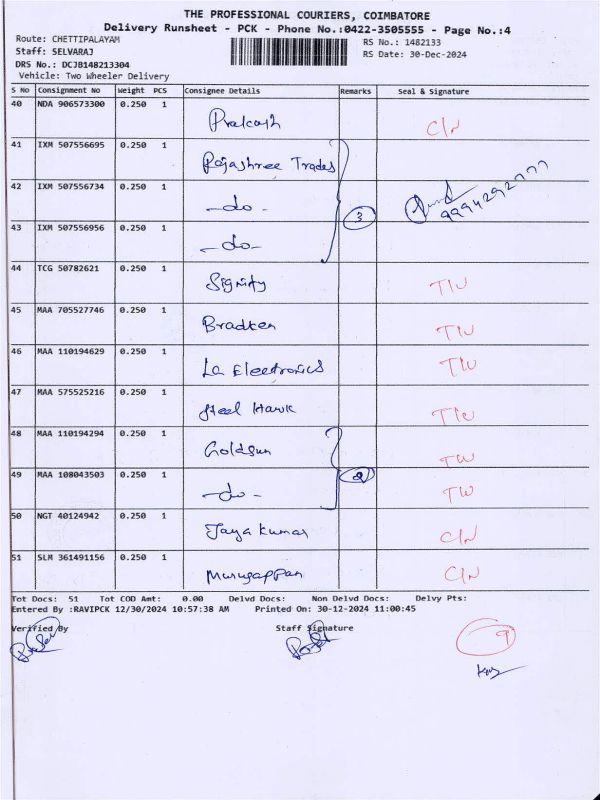 THE PROFESSIONAL COURIERS, COIMBATORE
Delivery Runsheet - PCK - Phone No.:0422-3505555 - Page No.:4
Route: CHETTIPALAYAM
RS No.: 1482133
Staff: SELVARAJ
RS Date: 30-Dec-2024
DRS No.: DCJB148213304
Vehicle: Two Wheeler Delivery
S No Consignment No Weight PCS Consignee Details Remarks Seal & Signature
40 NDA 906573300 0.250 1 Prakash C/N
41 IXM 507556695 0.250 1 Rajashree Trades
42 IXM 507556734 0.250 1 -do- 3 9994292777
43 IXM 507556956 0.250 1 -do-
44 TCG 50782621 0.250 1 Signity T/W
45 MAA 705527746 0.250 1 Bradken T/W
46 MAA 110194629 0.250 1 La Electronics T/W
47 MAA 575525216 0.250 1 Steel Hawk T/W
48 MAA 110194294 0.250 1 Goldsun TW
49 MAA 108043503 0.250 1 -do- 2 TW
50 NGT 40124942 0.250 1 Jaya kumar C/N
51 SLM 361491156 0.250 1 Murugappan C/N
Tot Docs: 51 Tot COD Amt: 0.00 Delvd Docs: Non Delvd Docs: Delvy Pts:
Entered By :RAVIPCK 12/30/2024 10:57:38 AM Printed On: 30-12-2024 11:00:45
Verified By Staff Signature
9